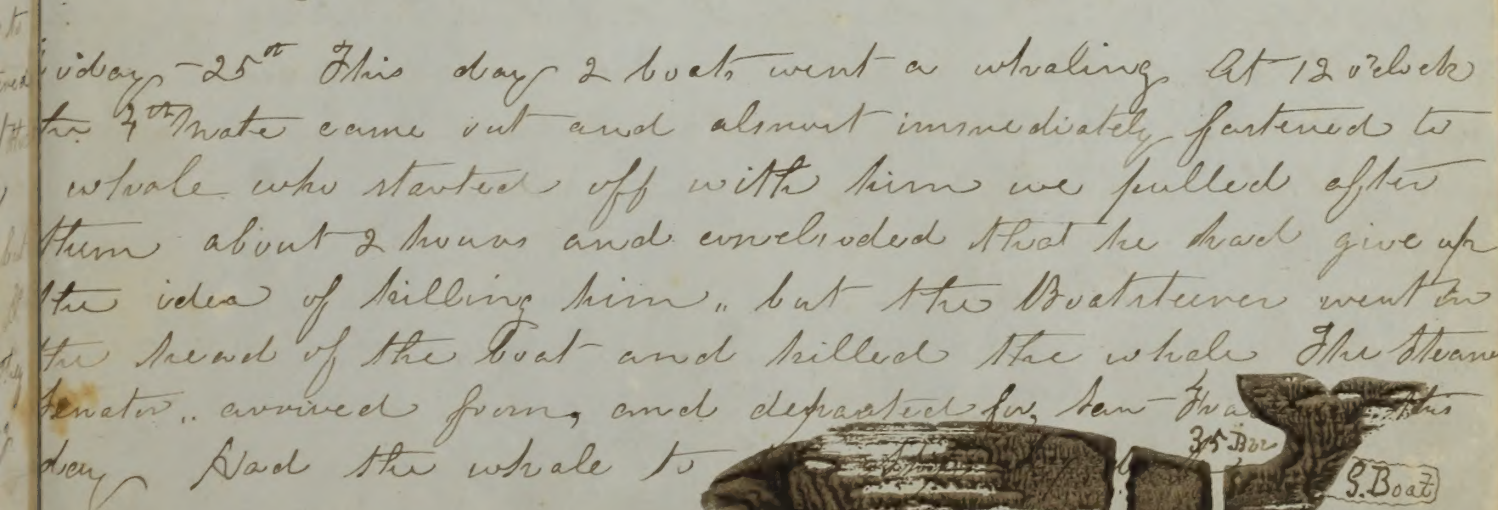 riday - 25th This day 2 boats went a whaling At 12 o'clock
the 4th Mate came out and almost immediately fastened to
whale who started off with him we pulled after
them about 2 hours and concluded that he had give up
the idea of killing him,, but the Boatsteerer went in
the head of the boat and killed the whale The Steame
Senator,, arrived from, and departed for, San Fra this
day Had the whale to
35 Bbr
S. Boat